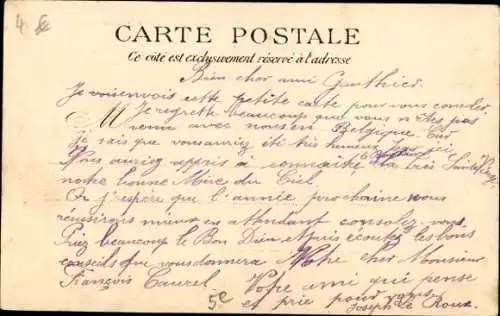 4 €
CARTE POSTALE
Ce côté est exclusivement réservé à l'adresse
Bien cher ami Gauthier.
Je vois envois cette petite carte pour vous consoler
M Je regrette beaucoup que vous n'êtes pas
venu avec nous en Belgique. Car
je sais que vous auriez été très heureux par ici
Vous auriez appris à connaître la très Sainte Vierge
notre bonne Mère du Ciel.
Or j'espère que l'année prochaine nous
réussirons mieux en attendant consolez-vous
Priez beaucoup le Bon Dieu et puis écoutez les bons
conseils que vous donnera Notre cher Monsieur
François Caurel. Votre ami qui pense
et prie pour vous
5e Joseph Le Roux